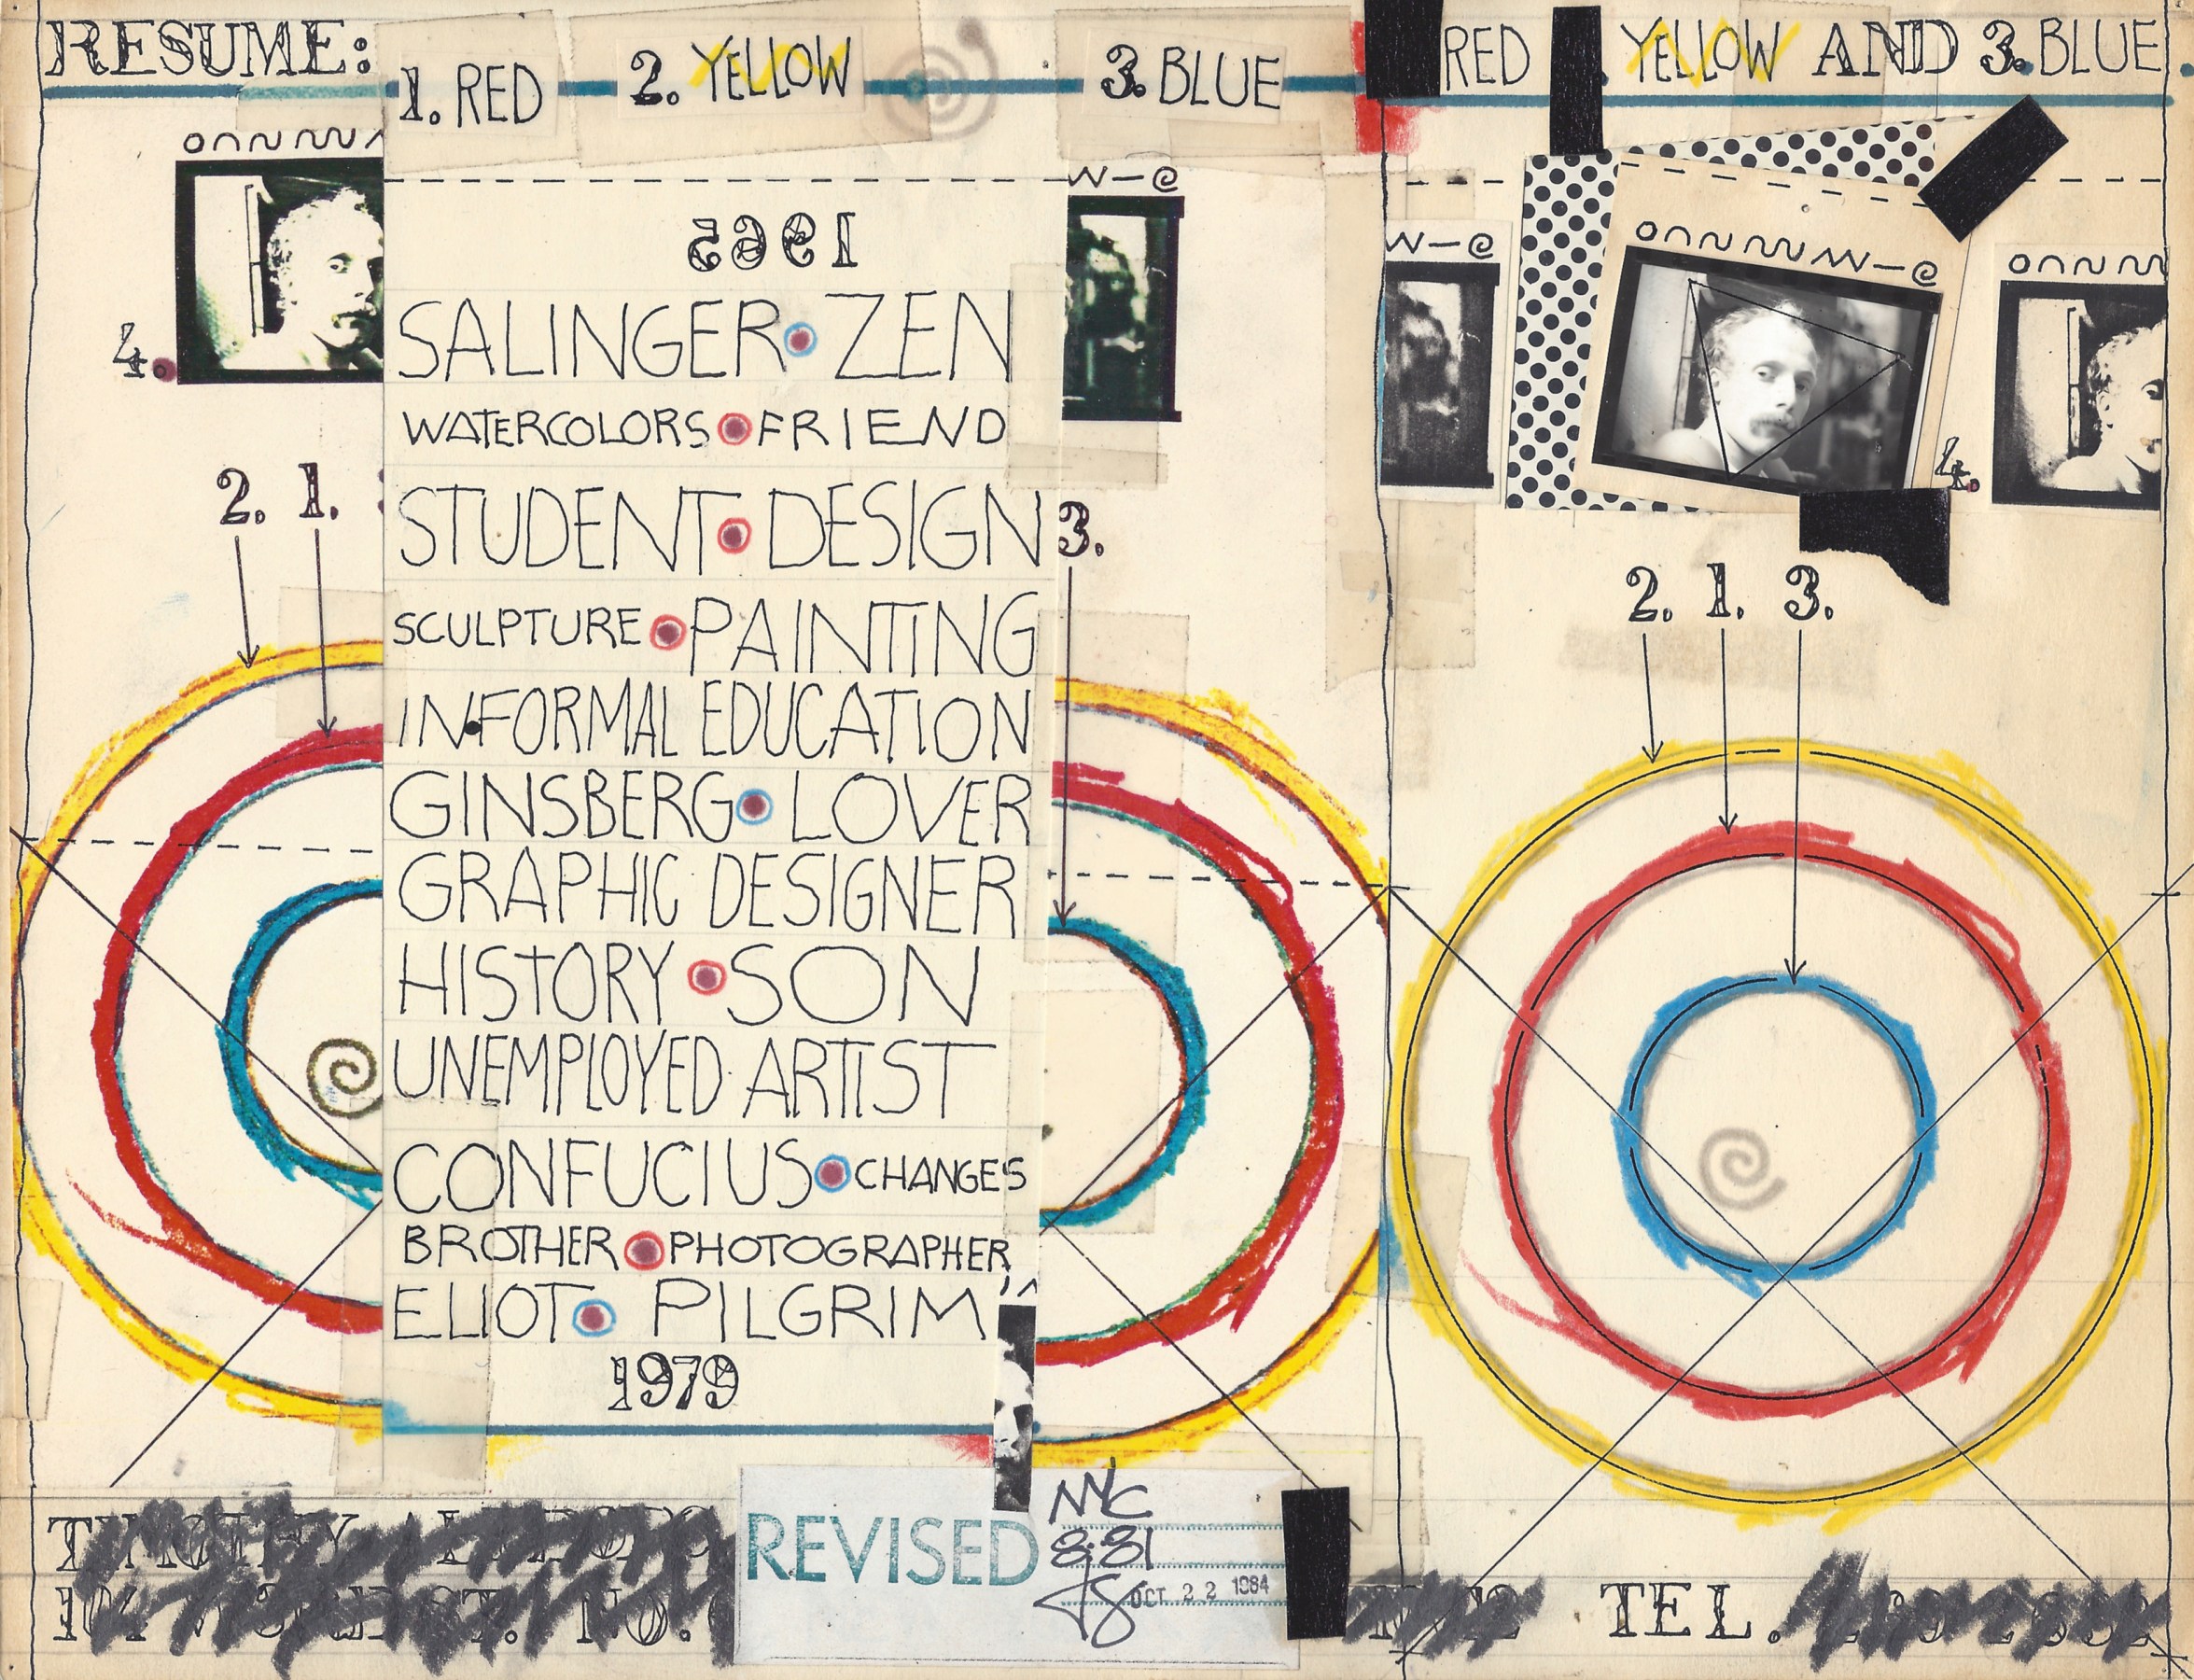 RESUME:
1. RED
2. YELLOW
3. BLUE
RED
YELLOW AND 3. BLUE
4.
1965
SALINGER • ZEN
WATERCOLORS • FRIEND
STUDENT • DESIGN
SCULPTURE • PAINTING
IN•FORMAL EDUCATION
GINSBERG • LOVER
GRAPHIC DESIGNER
HISTORY • SON
UNEMPLOYED ARTIST
CONFUCIUS • CHANGES
BROTHER • PHOTOGRAPHER,
ELIOT • PILGRIM
1979
2. 1.
3.
4.
2. 1. 3.
REVISED
NYC
8:81
OCT 22 1984
TEL.